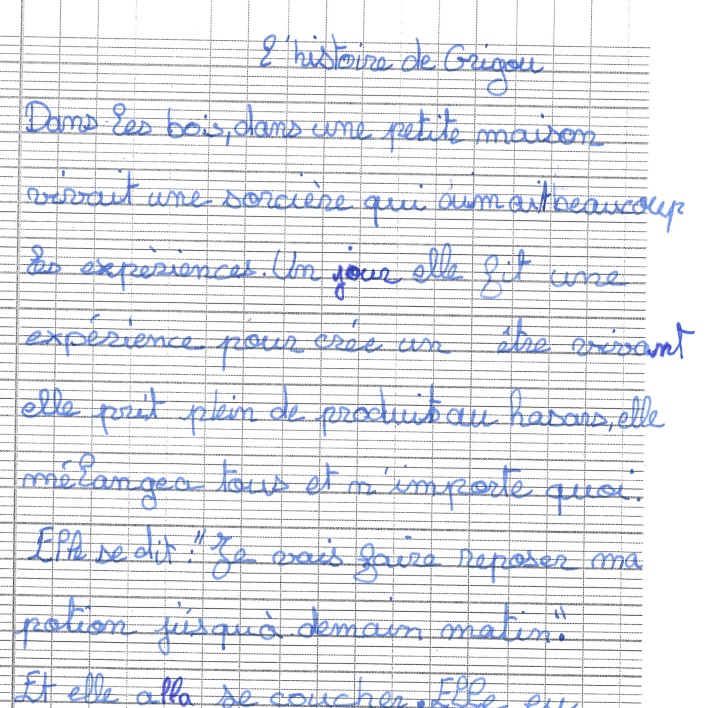 L'histoire de Grigou
Dans les bois, dans une petite maison
vivait une sorcière qui aimait beaucoup
les expèriences. Un jour elle fit une
expérience pour crée un être vivant
elle prit plein de produits au hasars, elle
mélangea tous et n'importe quoi.
Elle se dit : "Je vais faire reposer ma
potion jusquà demain matin."
Et elle alla se coucher. Elle eu